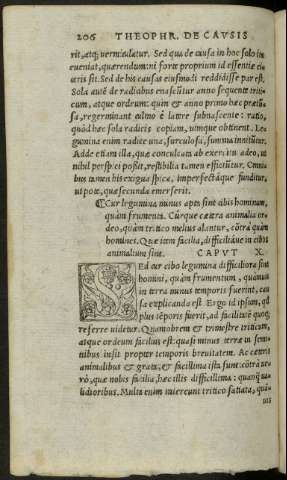 206 THEOPHR. DE CAVSIS
rit, atq; vermiculatur. Sed qua de causa in hoc solo in
eueniat, quærendum: ni forte proprium id essentiæ ci
ceris sit. Sed de his causas eiusmodi reddidisse par est.
Sola autē de radicibus enascūtur anno sequente triti-
cum, atque ordeum: quin & anno primo hæc præcisa
sa, regerminant eodmo è latere subnascente: ratio,
quòd hæc sola radicis copiam, uimque obtinent. Le-
gumina enim radice una, surculosa, summa innitūtur.
Adde etiam illa, quæ conculcata ab exercitu adeo, ut
nihil perspici possit, restibilia tamen efficiūtur. Omni
bus tamen his exigua spica, imperfectáque funditur,
utpote, quæ secunda emerserit.
Cur legumina minus apta sint cibis hominum,
quàm frumenta. Cúrque cætera animalia or-
deo, quàm tritico melius alantur, cōtrà quàm
homines. Quæ item facilia, difficiliáue in cibis
animalium sint. CAPVT X.
SEd cur cibo legumina difficiliora sint
homini, quàm frumentum, quamuis
in terra minus temporis fuerint, cau
sa explicanda est. Ergo id ipsum, qd
plus tēporis fuerit, ad facilitatē quoq;
referre uidetur. Quamobrem & trimestre triticum,
atque ordeum facilius est: quasi minus terræ in semi
nibus insit propter temporis breuitatem. Ac cæteris
animalibus & grata, & facillima ista sunt: cōtrà ue
rò, quæ nobis facilia, hæc illis difficillima: quanq̄ ua-
lidioribus. Multa enim intereunt tritico satiata, quā-
uis